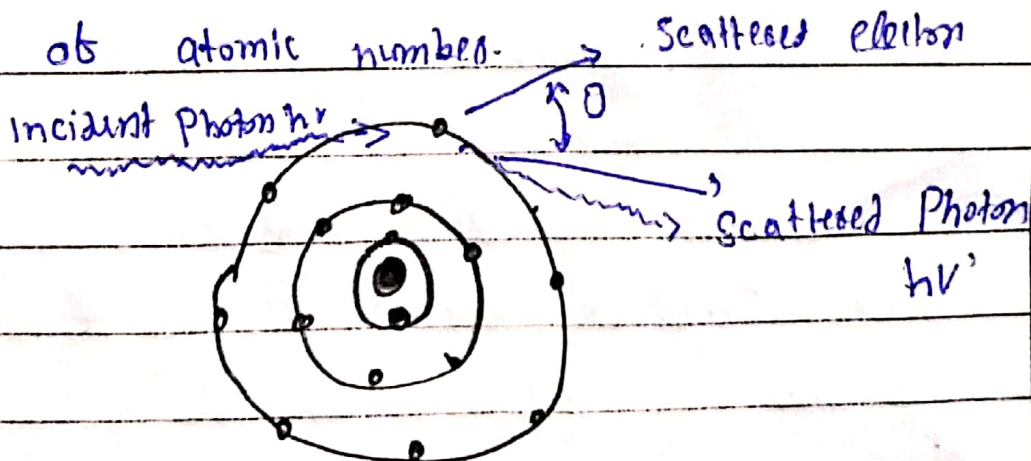 of atomic number. Scattered electron
Incident Photon hν θ
Scattered Photon
hν'